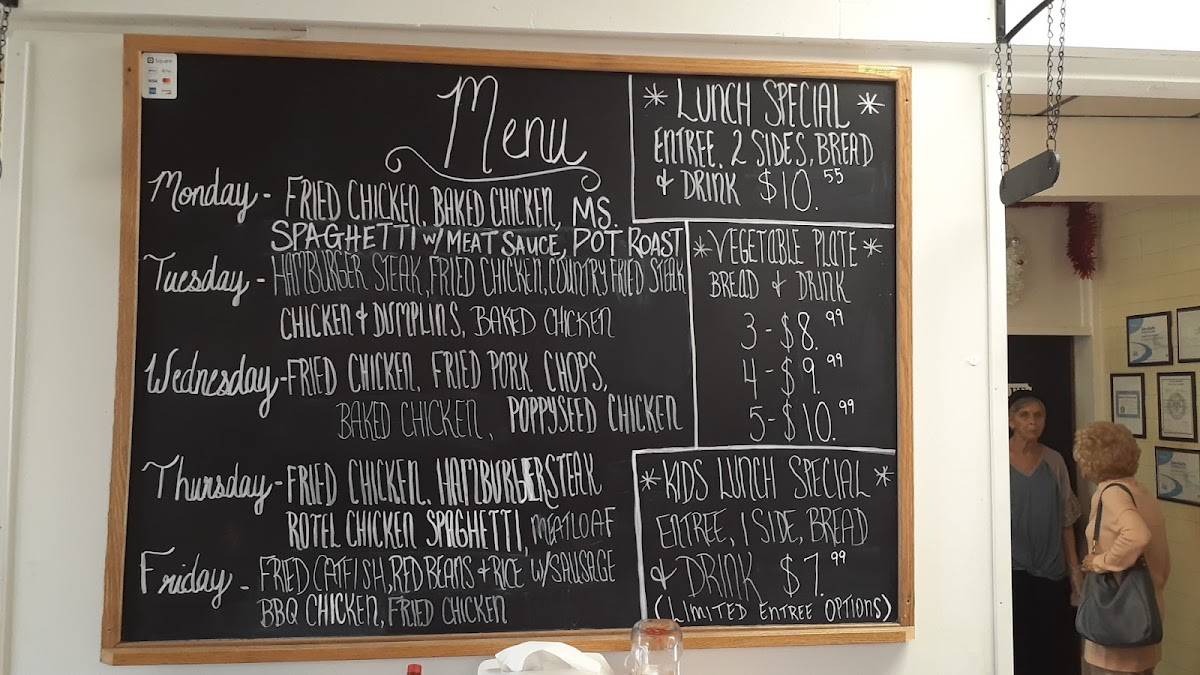 Square
Menu
Monday - FRIED CHICKEN, BAKED CHICKEN, MS.
SPAGHETTI w/ MEAT SAUCE, POT ROAST
Tuesday - HAMBURGER STEAK, FRIED CHICKEN, COUNTRY FRIED STEAK
CHICKEN & DUMPLINS, BAKED CHICKEN
Wednesday - FRIED CHICKEN, FRIED PORK CHOPS,
BAKED CHICKEN, POPPYSEED CHICKEN
Thursday - FRIED CHICKEN, HAMBURGER STEAK
ROTEL CHICKEN SPAGHETTI, MEATLOAF
Friday - FRIED CATFISH, RED BEANS + RICE W/ SAUSAGE
BBQ CHICKEN, FRIED CHICKEN
* LUNCH SPECIAL *
ENTREE, 2 SIDES, BREAD
& DRINK $10.55
* VEGETABLE PLATE *
BREAD & DRINK
3 - $8.99
4 - $9.99
5 - $10.99
* KIDS LUNCH SPECIAL *
ENTREE, 1 SIDE, BREAD
& DRINK $7.99
(LIMITED ENTREE OPTIONS)